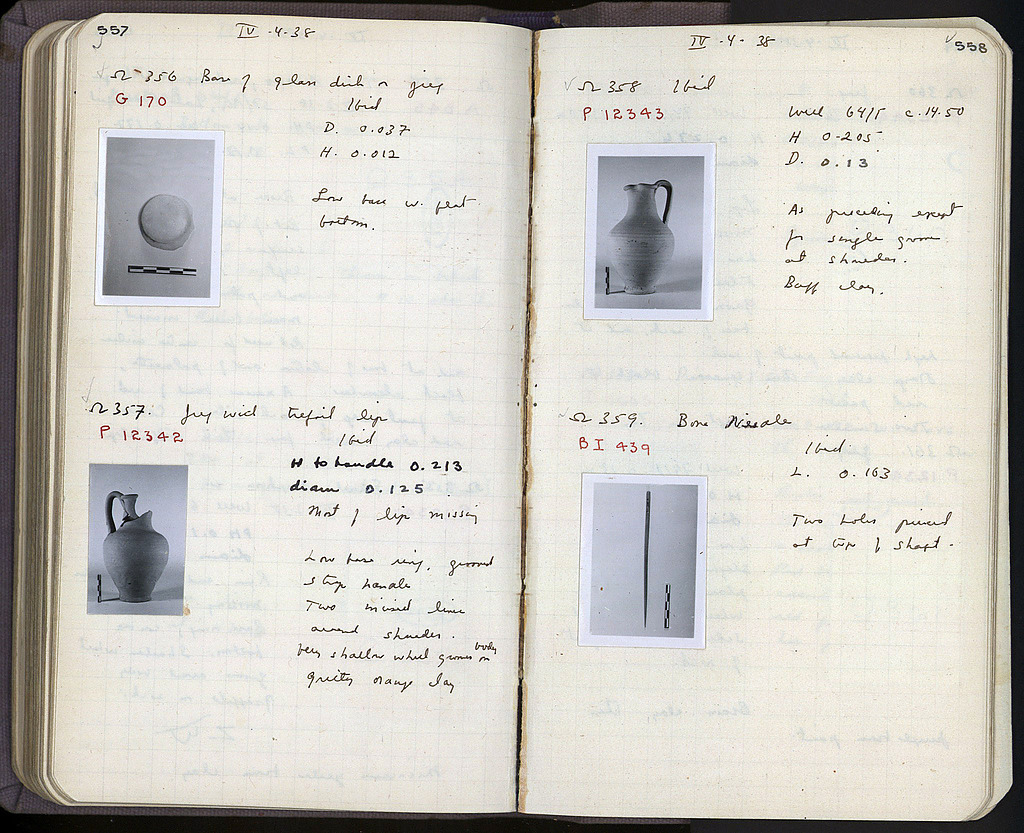 557
IV-4-38
Ω 356 Base of glass dish or jug
G 170
Ibid
D. 0.037
H. 0.012
Low base w. flat
bottom.
Ω 357. Jug with trefoil lip
P 12342
Ibid
H to handle 0.213
diam 0.125
Most of lip missing
Low base ring, grooved
strap handle
Two incised lines
around shoulder.
Very shallow wheel grooves on body
gritty orange clay
IV-4-38
558
Ω 358 Ibid
P 12343
Well 64/5 c.14.50
H 0.205
D. 0.13
As preceding except
for single groove
at shoulder.
Buff clay.
Ω 359. Bone Needle
BI 439
Ibid
L. 0.163
Two holes pierced
at top of shaft.